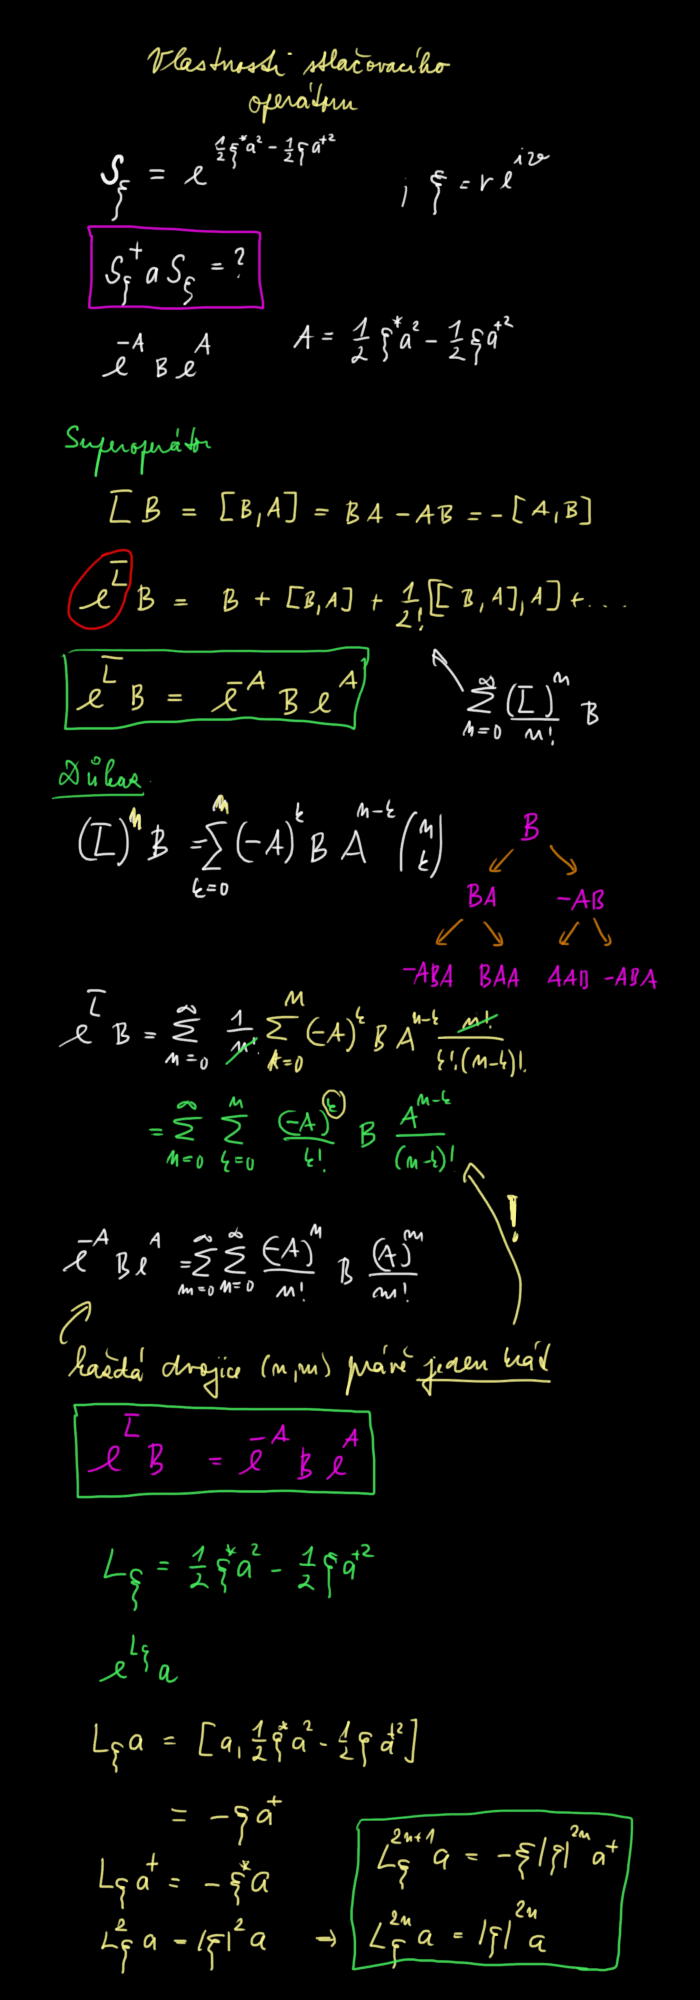 Vlastnosti stlačovacího
operátoru
S_ξ = e^{½ξ*a² - ½ξa⁺²} ; ξ = r e^{iϑ}
S_ξ⁺ a S_ξ = ?
e^{-A} B e^{A} A = ½ξ*a² - ½ξa⁺²
Superoperátor
L B = [B,A] = BA - AB = -[A,B]
e^{L} B = B + [B,A] + 1/2! [[B,A],A] + ....
e^{L} B = e^{-A} B e^{A}
∑_{n=0}^{∞} (L)^n/n! B
Důkaz
(L)^n B = ∑_{k=0}^{n} (-A)^k B A^{n-k} (n k)
B
BA -AB
-ABA BAA AAB -ABA
e^{L} B = ∑_{n=0}^{∞} 1/n! ∑_{k=0}^{n} (-A)^k B A^{n-k} n!/k!(n-k)!
= ∑_{n=0}^{∞} ∑_{k=0}^{n} (-A)^k/k! B A^{n-k}/(n-k)!
!
e^{-A} B e^{A} = ∑_{m=0}^{∞} ∑_{n=0}^{∞} (-A)^n/n! B (A)^m/m!
každá dvojice (n,m) právě jeden krát
e^{L} B = e^{-A} B e^{A}
L_ξ = ½ξ*a² - ½ξa⁺²
e^{L_ξ} a
L_ξ a = [a, ½ξ*a² - ½ξa⁺²]
= -ξa⁺
L_ξ a⁺ = -ξ*a
L_ξ² a = |ξ|² a →
L_ξ^{2n+1} a = -ξ|ξ|^{2n} a⁺
L_ξ^{2n} a = |ξ|^{2n} a